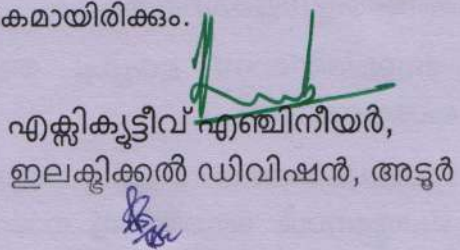 കമായിരിക്കും.
എക്സിക്യുട്ടീവ് എഞ്ചിനീയർ,
ഇലക്ട്രിക്കൽ ഡിവിഷൻ, അടൂർ